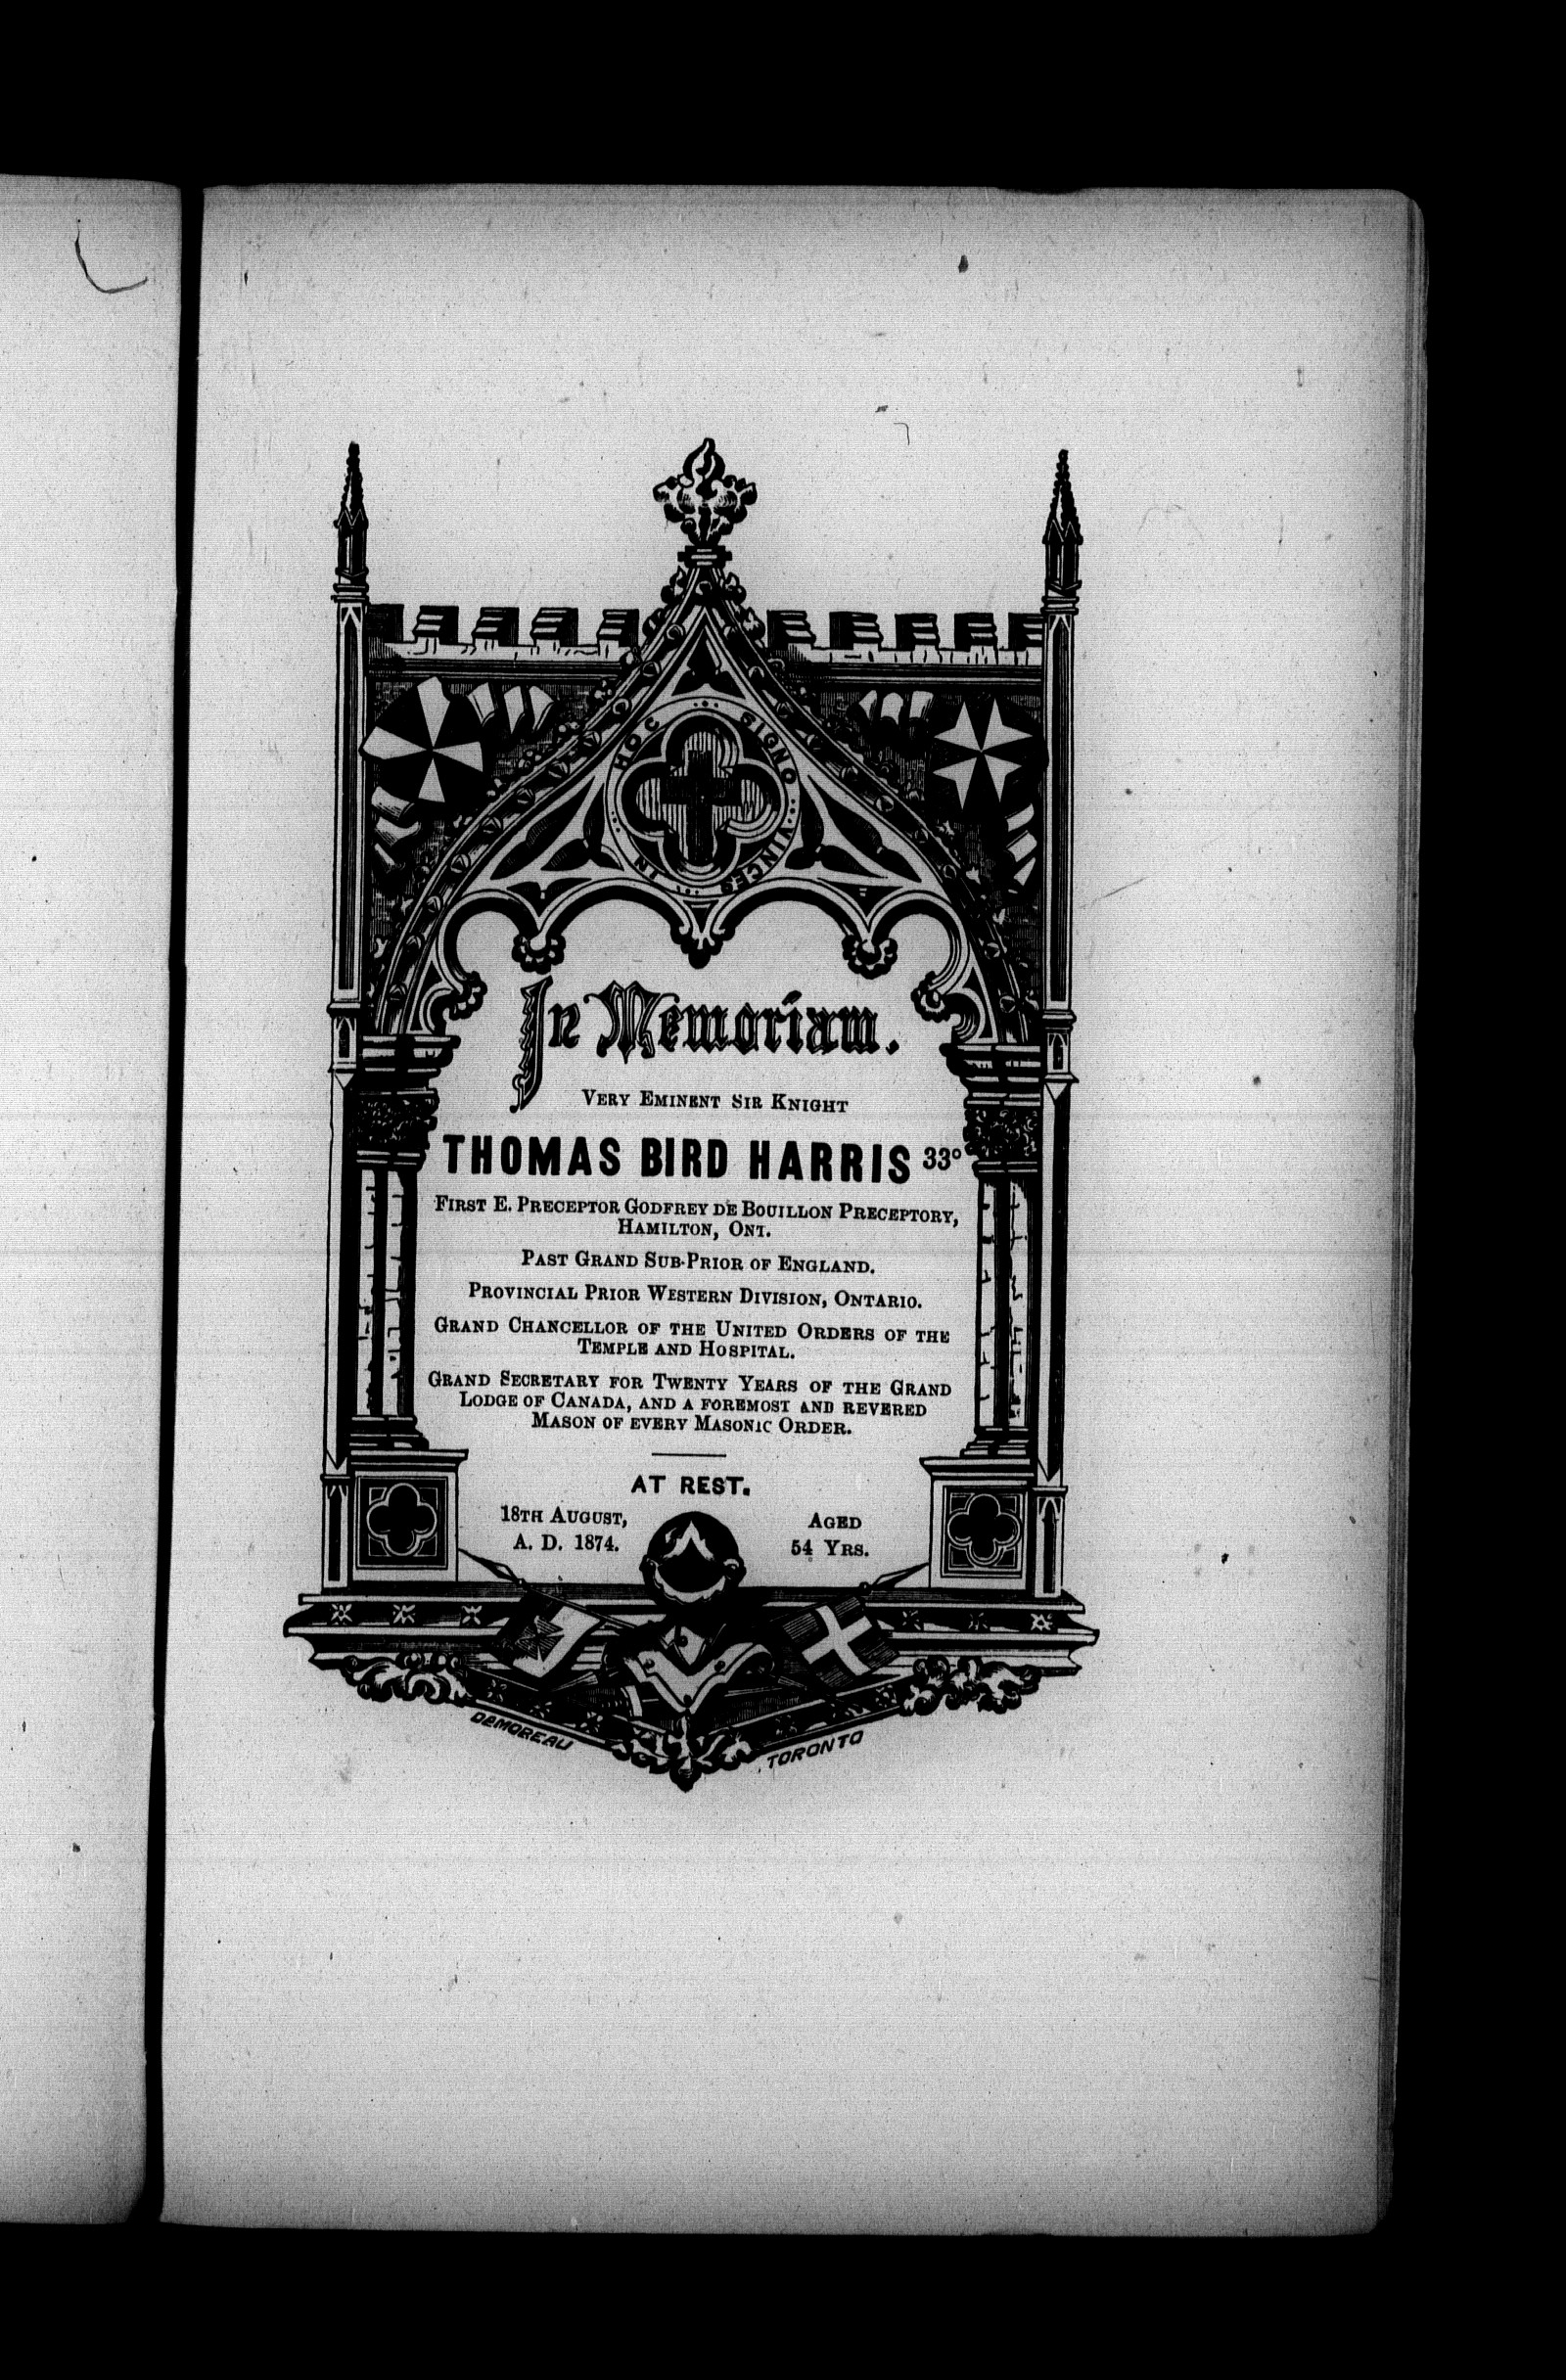 IN HOC SIGNO VINCES
In Memoriam.
VERY EMINENT SIR KNIGHT
THOMAS BIRD HARRIS 33°
FIRST E. PRECEPTOR GODFREY DE BOUILLON PRECEPTORY,
HAMILTON, ONT.
PAST GRAND SUB-PRIOR OF ENGLAND.
PROVINCIAL PRIOR WESTERN DIVISION, ONTARIO.
GRAND CHANCELLOR OF THE UNITED ORDERS OF THE
TEMPLE AND HOSPITAL.
GRAND SECRETARY FOR TWENTY YEARS OF THE GRAND
LODGE OF CANADA, AND A FOREMOST AND REVERED
MASON OF EVERY MASONIC ORDER.
AT REST.
18TH AUGUST,
A. D. 1874.
AGED
54 YRS.
DEMOREAU
TORONTO